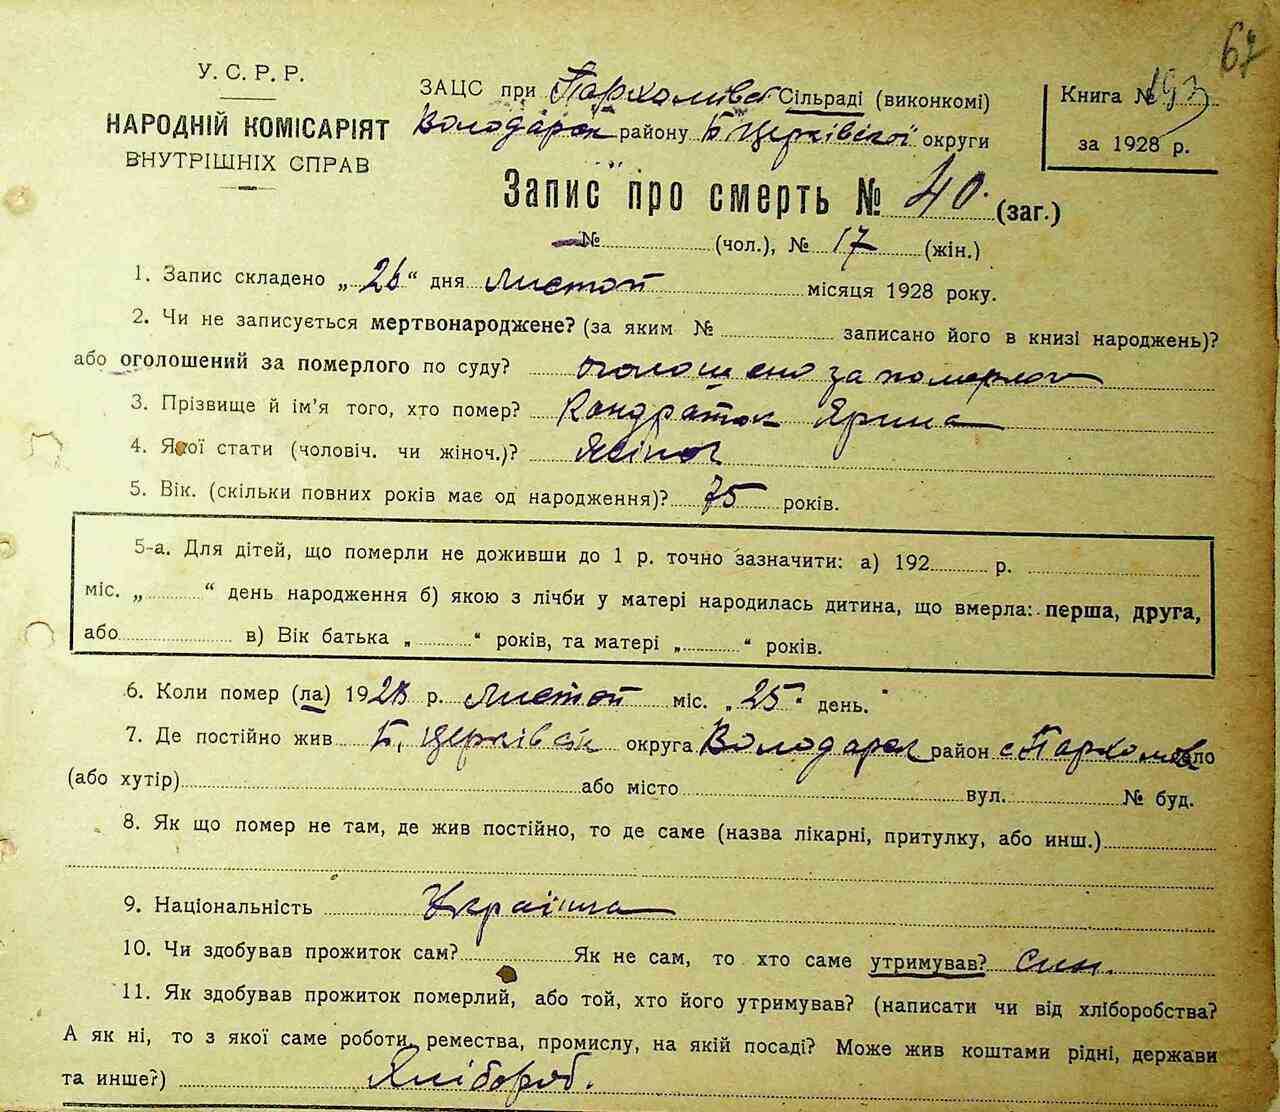 67
У. С. Р. Р.
НАРОДНІЙ КОМІСАРІЯТ
ВНУТРІШНІХ СПРАВ
ЗАЦС при Пархомівс Сільраді (виконкомі)
Володарск району Б Церківскої округи
Книга № 193
за 1928 р.
Запис про смерть № 40. (заг.)
№ (чол.), № 17 (жін.)
1. Запис складено „ 26 “ дня листоп місяця 1928 року.
2. Чи не записується мертвонароджене? (за яким № записано його в книзі народжень)?
або оголошений за померлого по суду? оголошено за померлого
3. Прізвище й ім'я того, хто помер? Кондраток Ярина
4. Якої стати (чоловіч. чи жіноч.)? Жіноч
5. Вік. (скільки повних років має од народження)? 75 років.
5-а. Для дітей, що померли не доживши до 1 р. точно зазначити: а) 192 р.
міс. „ “ день народження б) якою з лічби у матері народилась дитина, що вмерла: перша, друга,
або в) Вік батька „ “ років, та матері „ “ років.
6. Коли помер (ла) 1928 р. листоп міс. „ 25 “ день.
7. Де постійно жив Б. Церківск округа Володарск район с Пархомів село
(або хутір) або місто вул. № буд.
8. Як що помер не там, де жив постійно, то де саме (назва лікарні, притулку, або инш.)
9. Національність Українка
10. Чи здобував прожиток сам? Як не сам, то хто саме утримував? син.
11. Як здобував прожиток померлий, або той, хто його утримував? (написати чи від хліборобства?
А як ні, то з якої саме роботи, ремества, промислу, на якій посаді? Може жив коштами рідні, держави
та инше?) Хлібороб.